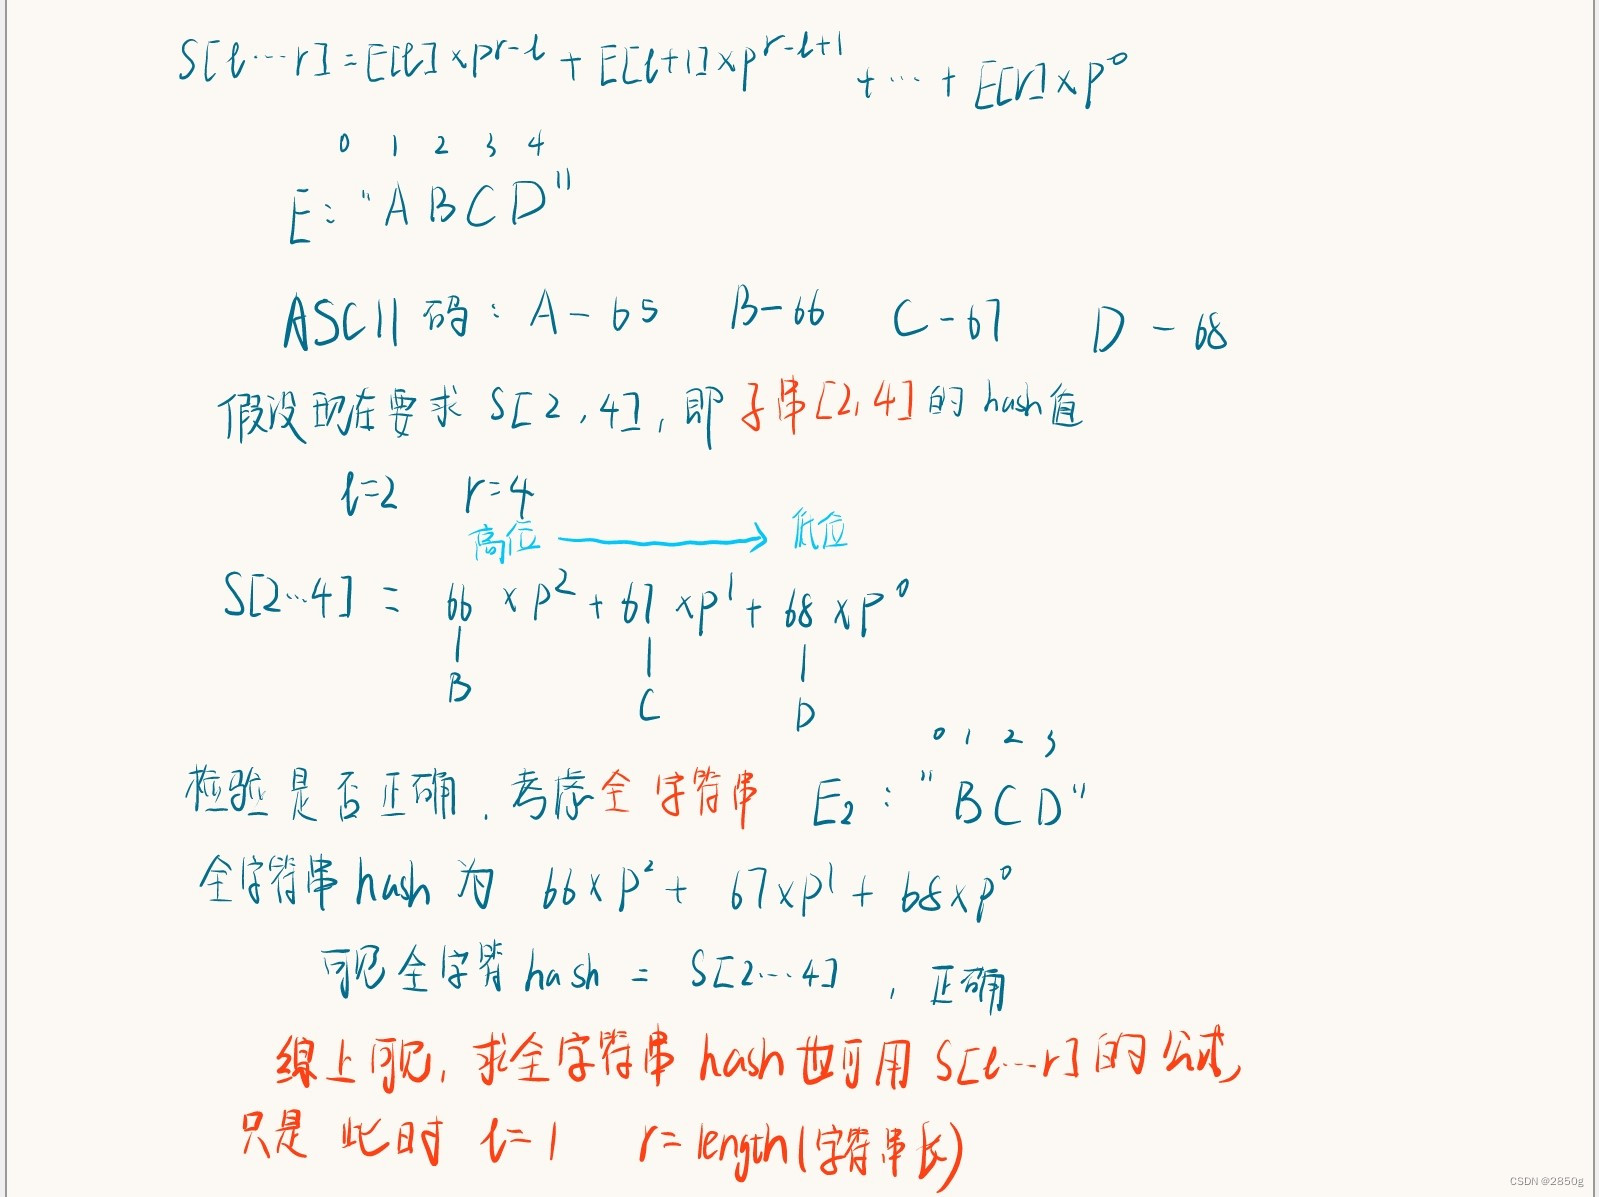 S[l…r]=E[l]×p^{r-l}+E[l+1]×p^{r-l+1}+…+E[r]×p^0
0 1 2 3 4
E:"ABCD"
ASCII码:A-65 B-66 C-67 D-68
假设现在要求 S[2,4],即子串[2,4]的hash值
l=2 r=4
高位 低位
S[2…4] = 66×p^2+67×p^1+68×p^0
B C D
0 1 2 3
检验是否正确,考虑全字符串 E₂:"BCD"
全字符串hash为 66×p^2+67×p^1+68×p^0
可见全字符hash = S[2…4],正确
综上可见,求全字符串hash也可用S[l…r]的公式,
只是此时 l=1 r=length(字符串长)
CSDN @2850g